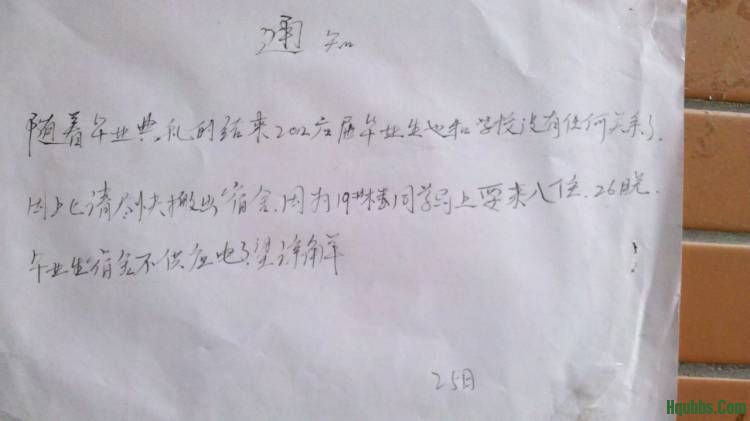 通知
随着毕业典礼的结束2012应届毕业生也和学校没有任何关系了.
因此请尽快搬出宿舍.因为19#楼同学马上要来入住.26晚.
毕业生宿舍不供应电了望谅解
25日
Hqubbs.Com